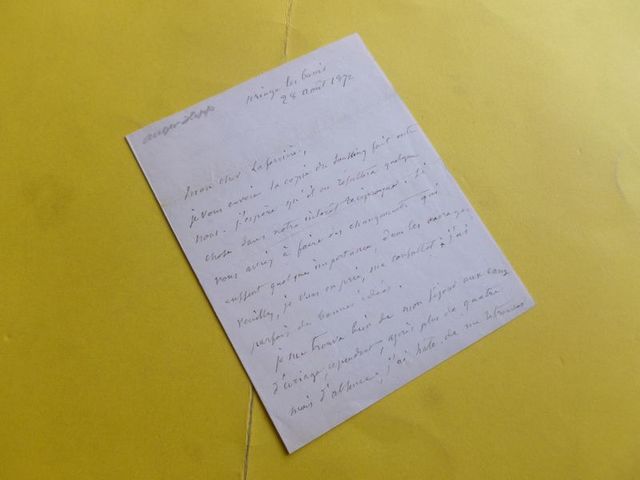 Uriage les bains
24 août 1872
Mon cher Laferrière,
je vous envoie la copie du fait entre
nous. J'espère qu'il en résultera quelque
chose dans notre intérêt réciproque. Si
vous aviez à faire des changements qui
eussent quelque importance, dans les ouvrages,
veuillez, je vous en prie, me consulter; j'ai
parfois de bonnes idées.
je me trouve bien de mon séjour aux eaux
d'Uriage, cependant, après plus de quatre
mois d'absence, j'ai hâte de me retrouver